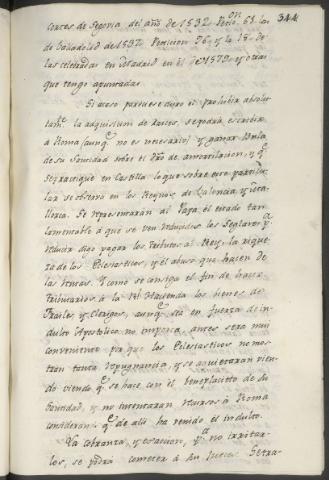 344
Cortes de Segovia del año de 1532. Peticion 61. las
de Valladolid de 1537. Peticion 76. y la 18. de
las celebradas en Madrid en el de 1579. y otras
que tengo apuntadas.
Si acaso pareciese duro el prohibir absolu-
tamte. la adquisicion de Raices, se podria escribir
a Roma (aunqe. no es necesario) y ganar Bula
de su Santidad sobre el dro de amortizacion, y qe.
se practique en Castilla lo que sobre este particu-
lar se observa en los Reynos de Valencia y Ma-
llorca. Se representarán al Papa el estado tan
lamentable a que se ven reducidos los Seglares pa.
digo pagar los tributos al Rey, la rique-
za de los Eclesiasticos, y el abuso que hacen de
las . Y como se consiga el fin de hacer
tributarios á la Rl. Hacienda los bienes de
Frailes, y Clerigos, aunqe. sea en fuerza de in-
dulto Apostolico no importa, antes será mui
conveniente pa. que los Eclesiasticos no mos-
tren tanta repugnancia, y se aquietaran vien-
do viendo qe. se hace con el beneplacito de Su
Santidad, y no intentaran recurso á Roma
considerando qe. de alli ha venido el indulto.
La cobranza, y exaccion, pa. no irritar-
los, se podrá cometer á su Juez. Se tra-